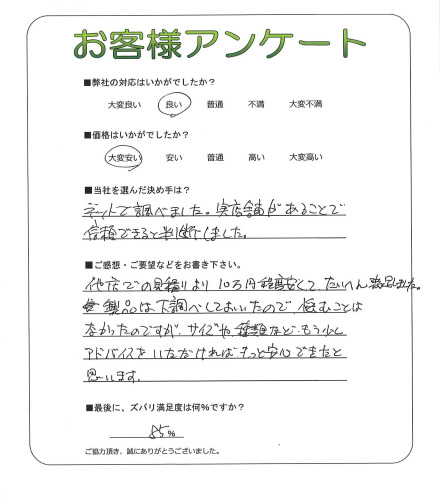 お客様アンケート
■弊社の対応はいかがでしたか?
大変良い 良い 普通 不満 大変不満
■価格はいかがでしたか?
大変安い 安い 普通 高い 大変高い
■当社を選んだ決め手は?
ネットで調べました。実店舗があることで
信頼できると判断しました。
■ご感想・ご要望などをお書き下さい。
他店での見積りより10万円程度安くて、たいへん満足しました。
製品は下調べしておいたので 悩むことは
なかったのですが、サイズや種類など、もう少し
アドバイスをいただければもっと安心できたと
思います。
■最後に、ズバリ満足度は何%ですか?
85%
ご協力頂き、誠にありがとうございました。